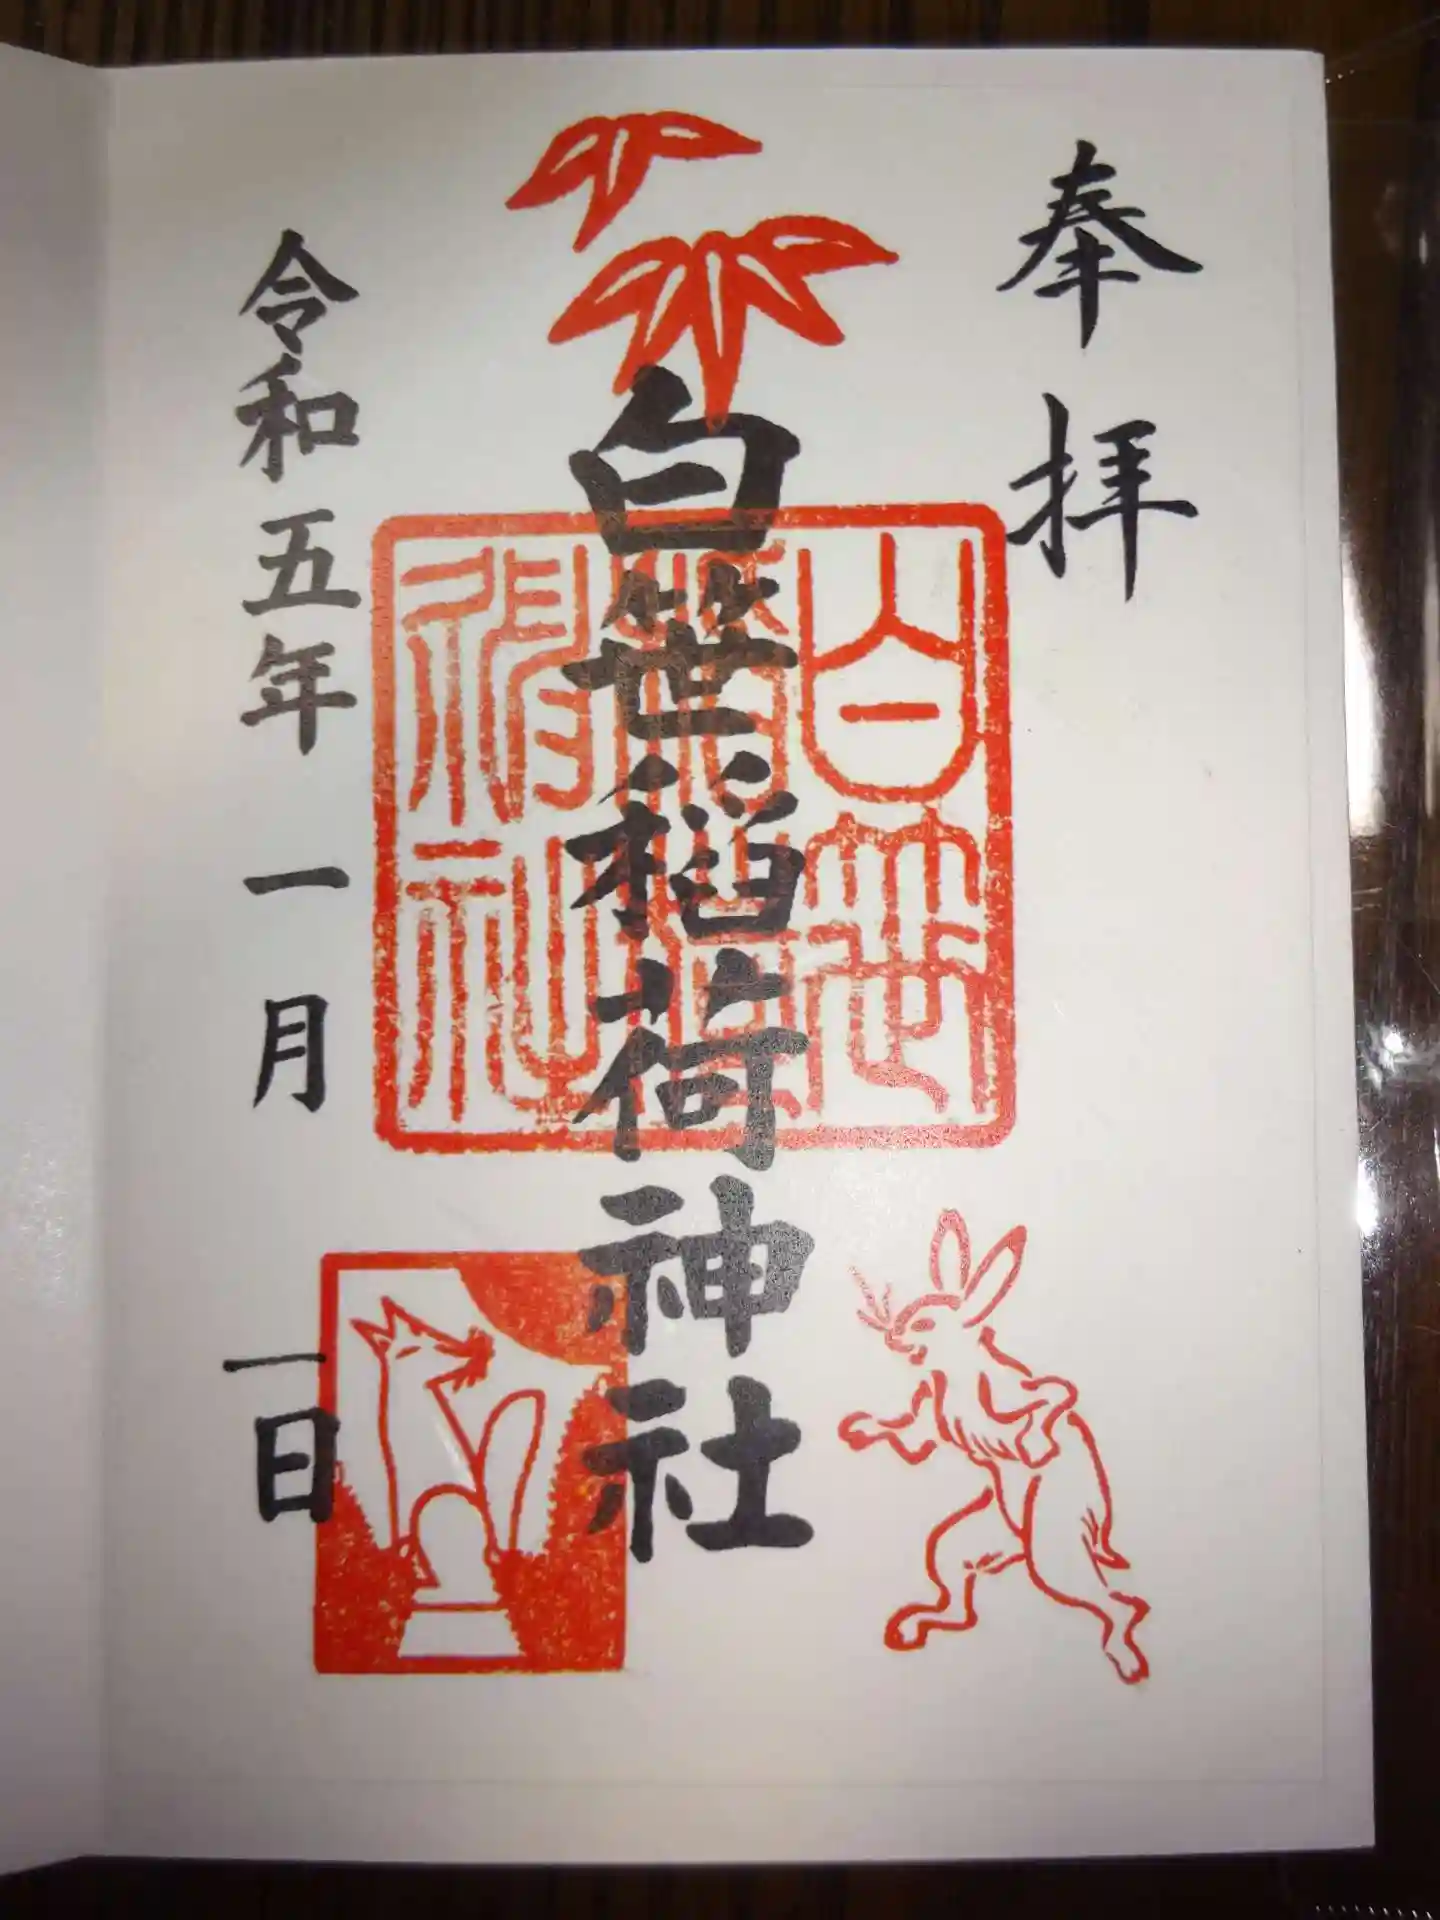 奉拝
白笹稲荷神社
白笹稲荷神社
令和五年一月一日